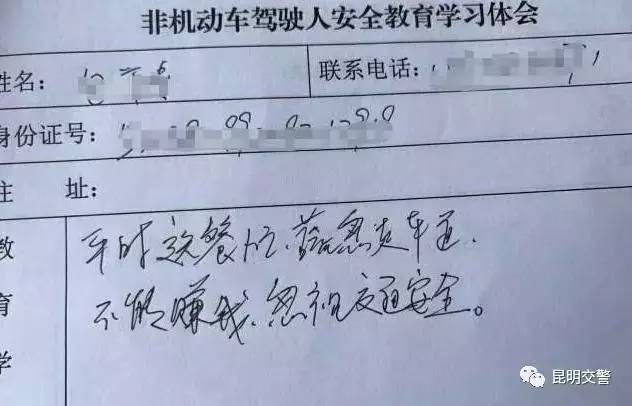 非机动车驾驶人安全教育学习体会
姓名：
联系电话：
身份证号：
住 址：
教
育
学
平时送餐忙，随意走车道，
不能赚钱，忽视交通安全。
昆明交警